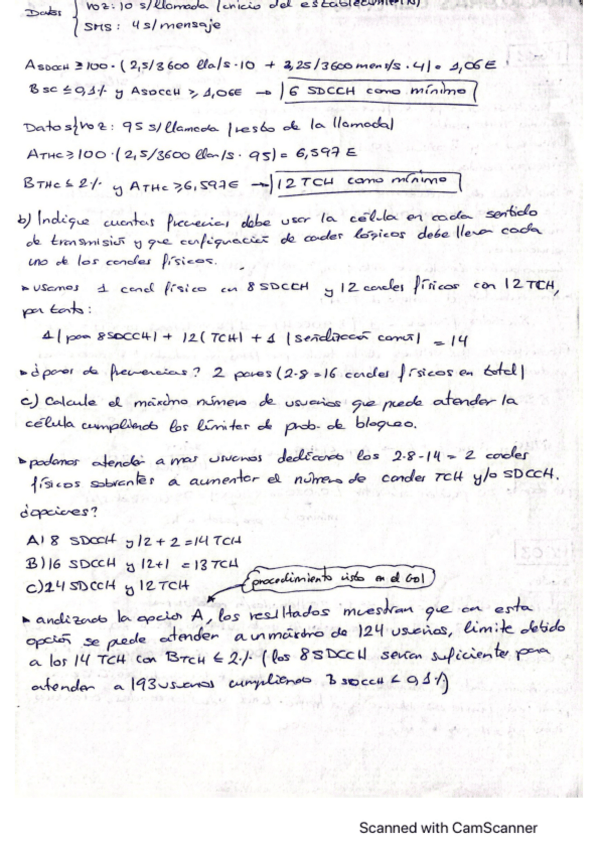 Datos { Voz: 10 s/llamada (inicio del establecimiento)
SMS: 4 s/mensaje
ASDCCH ≥ 100 · (2,5/3600 lla/s · 10 + 3,25/3600 mens/s · 4) = 1,06 E
BSC ≤ 0,1% y ASDCCH ≥ 1,06E → 6 SDCCH como mínimo
Datos{voz: 95 s/llamada (resto de la llamada)
ATHC ≥ 100 · (2,5/3600 llam/s · 95) = 6,597 E
BTHC ≤ 2% y ATHC ≥ 6,597E → 12 TCH como mínimo
b) Indique cuantas frecuencias debe usar la célula en cada sentido
de transmisión y que configuración de canales lógicos debe llevar cada
uno de los canales físicos.
usamos 1 canal físico con 8 SDCCH y 12 canales físicos con 12 TCH,
por tanto:
1 (para 8SDCCH) + 12 (TCH) + 1 (señalización común) = 14
¿pares de frecuencias? 2 pares (2·8 = 16 canales físicos en total)
c) Calcule el máximo número de usuarios que puede atender la
célula cumpliendo los límites de prob. de bloqueo.
podemos atender a mas usuarios dedicando los 2·8-14 = 2 canales
físicos sobrantes a aumentar el número de canales TCH y/o SDCCH.
¿opciones?
A) 8 SDCCH y 12 + 2 = 14 TCH
B) 16 SDCCH y 12+1 = 13 TCH
C) 24 SDCCH y 12 TCH
procedimiento visto en el
analizando la opción A, los resultados muestran que con esta
opción se puede atender a un máximo de 124 usuarios, límite debido
a los 14 TCH con BTCH ≤ 2% (los 8 SDCCH serían suficientes para
atender a 193 usuarios cumpliendo BSDCCH ≤ 0,1%)
Scanned with CamScanner